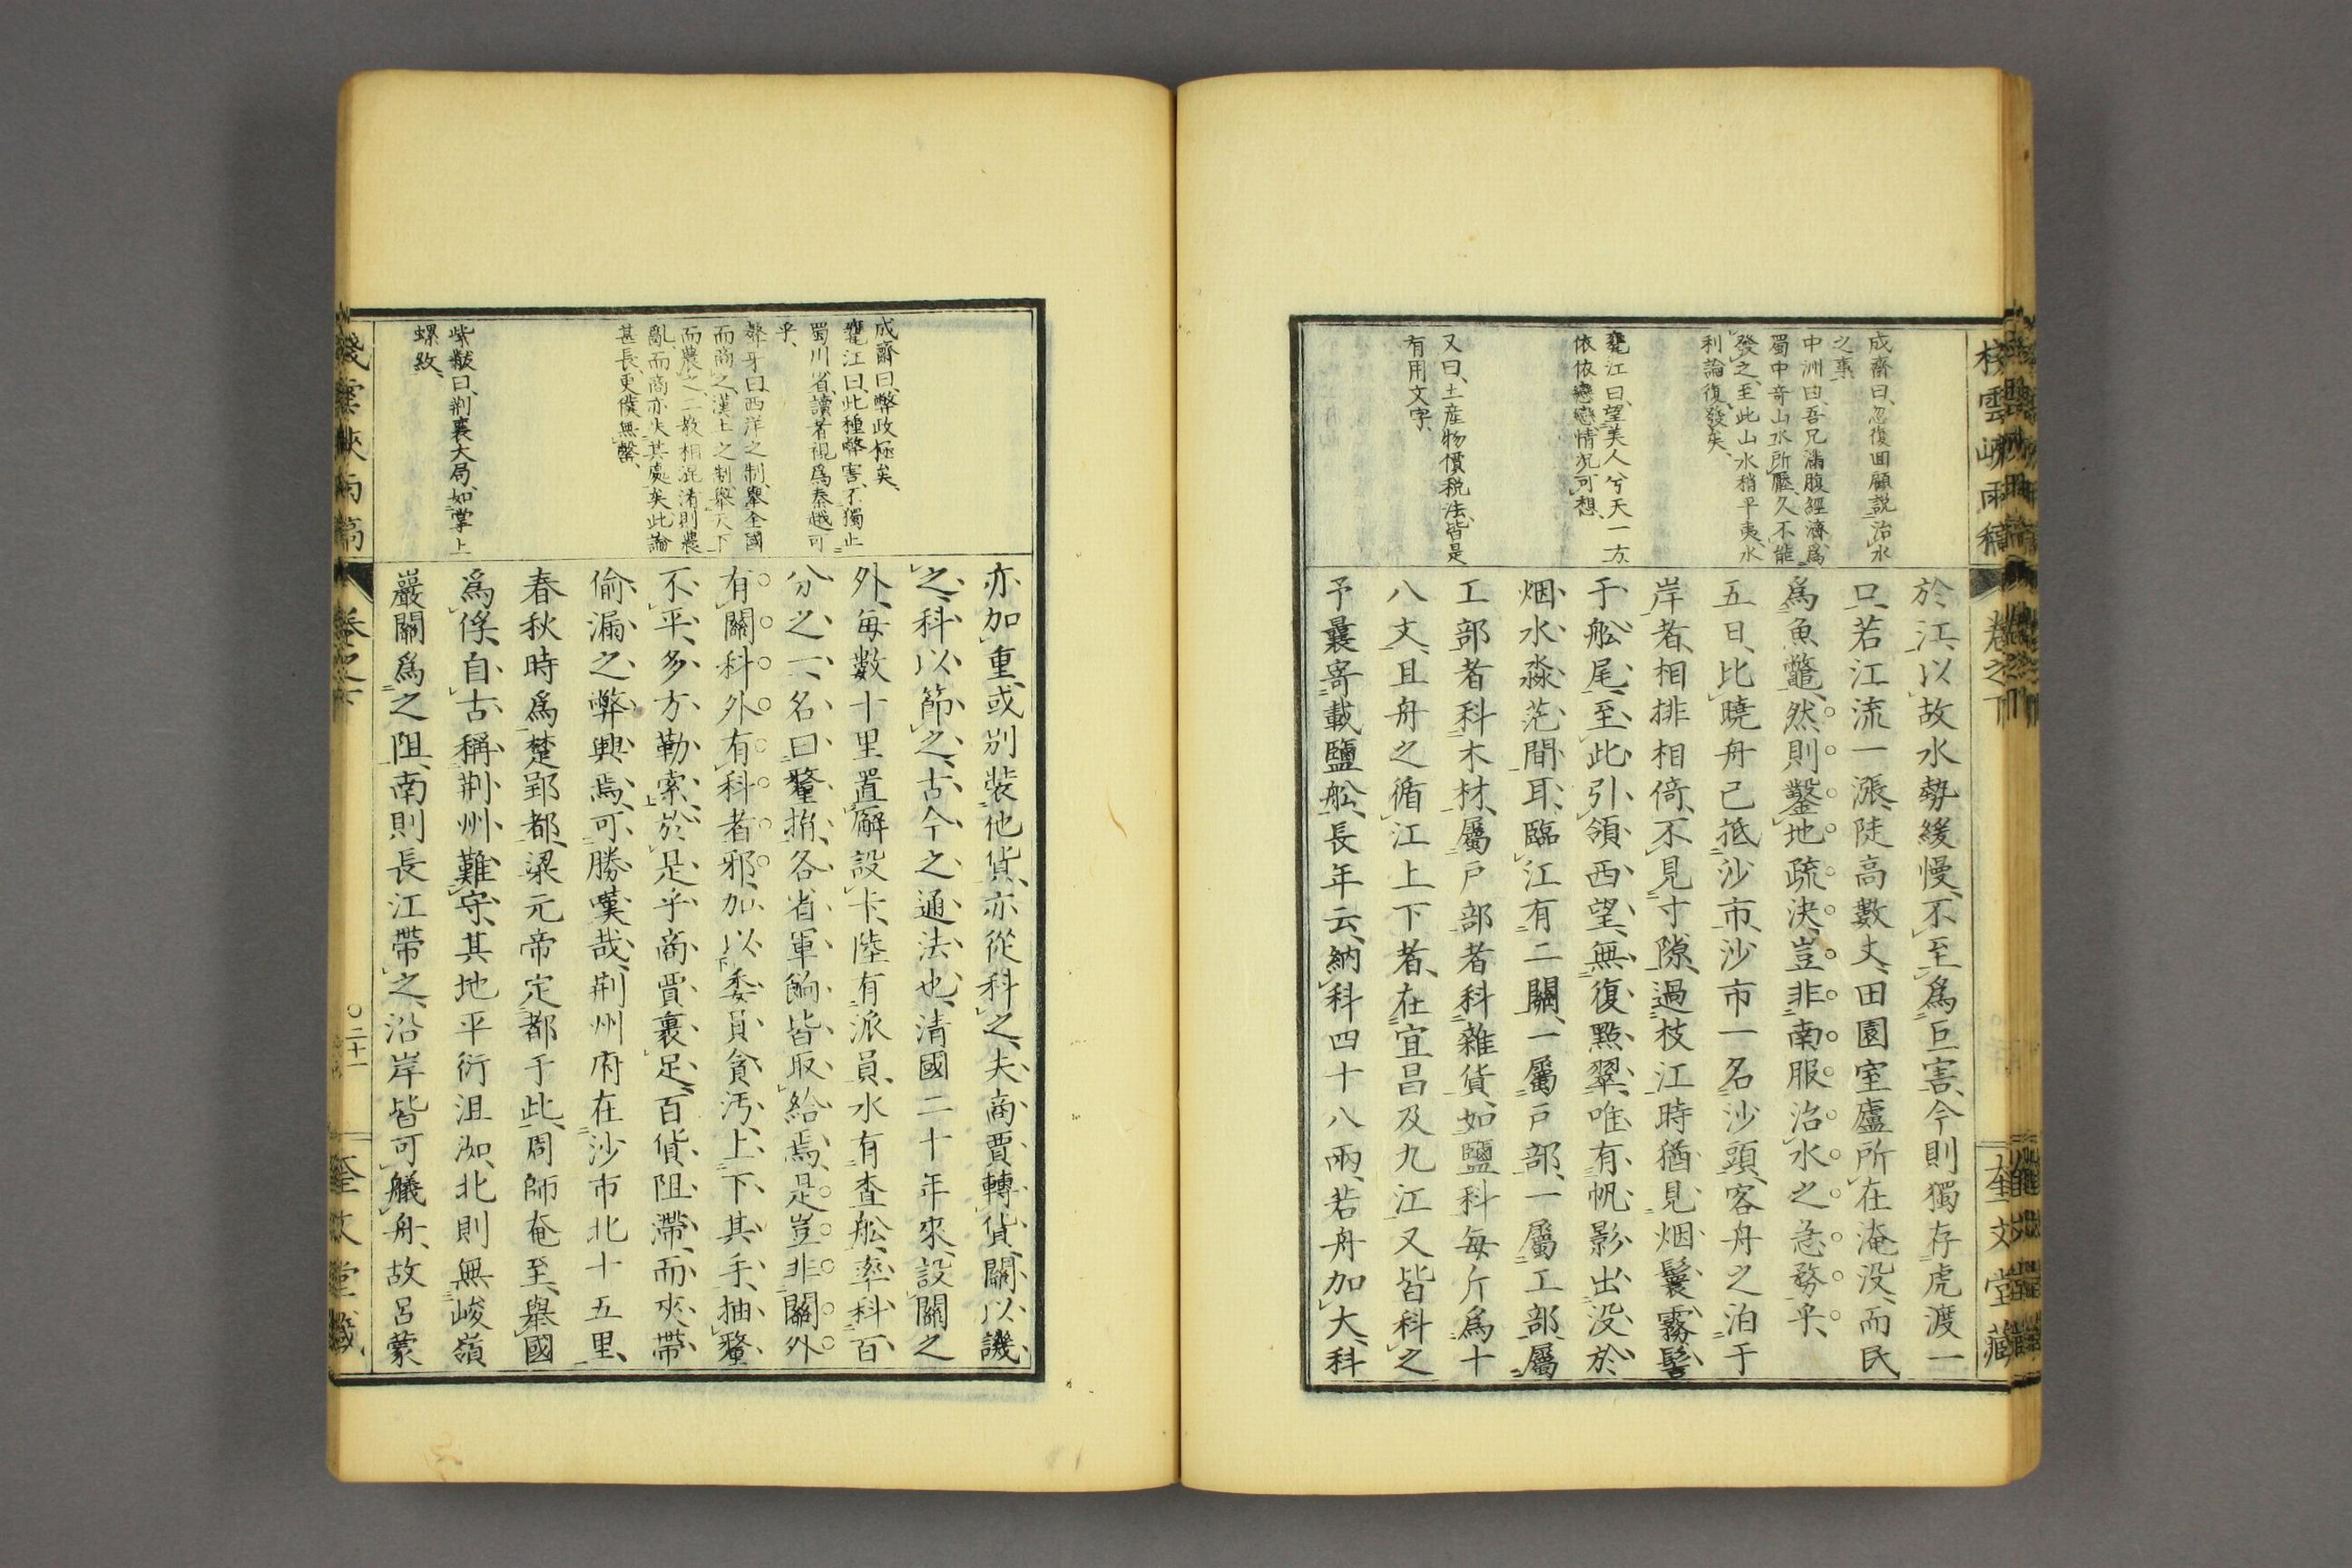 棧雲峽雨稿
卷之下
奎文堂藏
成齋曰、忽復回顧說治水
之事、
中洲曰、吾兄滿腹經濟、爲
蜀中奇山水所壓、久不能
發之、至此山水稍平夷、水
利論復發矣、
甕江曰、望美人兮天一方、
依依戀戀、情況可想、
又曰、土産物價税法、皆是
有用文字、
於江、以故水勢緩慢、不至爲巨害、今則獨存虎渡一
口、若江流一漲、陡高數丈、田園室廬所在淹没、而民
爲魚鼈、然則鑿地疏決、豈非南服治水之急務乎、
五日、比曉舟已抵沙市、沙市一名沙頭、客舟之泊于
岸者、相排相倚、不見寸隙、過枝江時猶見烟鬟霧髻
于舩尾、至此引領西望、無復點翠、唯有帆影出没於
烟水淼茫間耳、臨江有二關、一屬戸部、一屬工部、屬
工部者科木材、屬戸部者科雜貨、如鹽科每斤爲十
八文、且舟之循江上下者、在宜昌及九江又皆科之
予曩寄載鹽舩、長年云、納科四十八兩、若舟加大、科
成齋曰、弊政極矣、
甕江曰、此種弊害、不獨止
蜀川省、讀者視爲秦越可
乎、
聱牙曰、西洋之制、舉全國
而商之、漢土之制、舉天下
而農之、二敎相混淆、則農
亂、而商亦失其處矣、此論
甚長、更僕無罄、
柴猷曰、荆襄大局、如掌上
螺紋、
亦加重、或別裝他貨、亦從科之、夫商賈轉貨、關以譏
之、科以節之、古今之通法也、清國二十年來、設關之
外、每數十里置廨設卡、陸有派員、水有査舩、率科百
分之一、名曰釐捐、各省軍餉皆取給焉、是豈非關外
有關科外有科者邪、加以委員貪汚、上下其手、抽釐
不平、多方勒索、於是乎商賈裹足、百貨阻滯、而夾帶
偷漏之弊興焉、可勝嘆哉、荆州府在沙市北十五里、
春秋時爲楚郢都、梁元帝定都于此、周師奄至、舉國
爲俘、自古稱荆州難守、其地平衍沮洳、北則無峻嶺
巖關爲之阻、南則長江帶之、沿岸皆可艤舟、故呂蒙
棧雲峽雨稿
卷之下
二十一
奎文堂藏